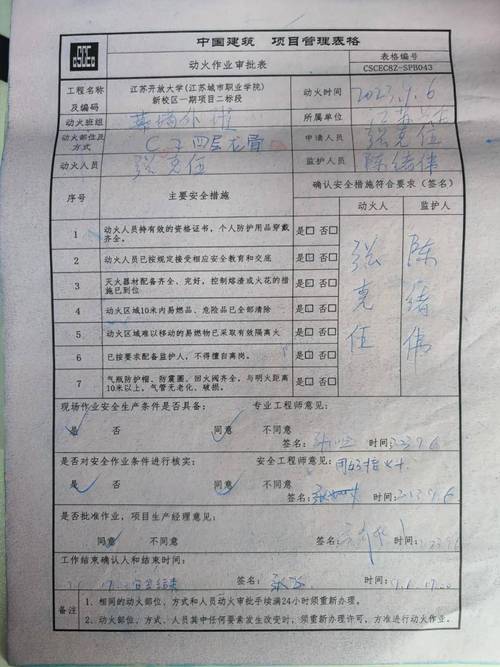 CSCEC
中国建筑 项目管理表格
动火作业审批表
表格编号
CSCEC8Z-SPB043
工程名称及编码
江苏开放大学(江苏城市职业学院)
新校区一期项目二标段
动火时间 2023.9.6
动火班组 幕墙外
所属单位 江苏
动火部位及方式 四层龙骨
申请人员 张克伍
动火人员 张克伍
监护人员 陈绪伟
序号 主要安全措施 确认安全措施符合要求(签名)
动火人 监护人
1 动火人员持有效的资格证书,个人防护用品穿戴齐全。 是□ 否□
2 动火人员已按规定接受相应安全教育和交底 是□ 否□
3 灭火器材配备齐全、完好,控制熔渣或火花的措施已到位 是□ 否□
4 动火区域10米内易燃品、危险品已全部清除 是□ 否□
5 动火区域难以移动的易燃物已采取有效隔离火 是□ 否□
6 已按要求配备监护人,不得擅自离岗。 是□ 否□
7 气瓶防护帽、防震圈、回火阀齐全,与明火距离10米以上,气管无老化、破损。 是□ 否□
张克伍 陈绪伟
现场作业安全生产条件是否具备: 专业工程师意见:
是 否 同意 不同意
签名: 时间:
是否对安全作业条件进行核实: 安全工程师意见:
是 否 同意 不同意
签名: 时间:2023.9.6
是否批准作业,项目生产经理意见:
同意 不同意
签名: 时间:
工作结束确认人和结束时间:
结束 签名: 时间:
备注
1、相同的动火部位、方式和人员动火审批手续满24小时须重新办理。
2、动火部位、方式、人员其中任何要素生发生改变时,须重新办理许可,方准进行动火作业。